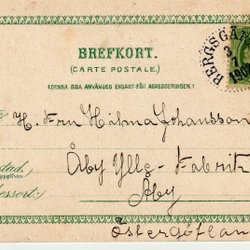 BREFKORT.
(CARTE POSTALE.)
(DENNA SIDA ANVÄNDES ENDAST FÖR ADRESSERINGEN.)
BERGSGÅR
3
7
H. Fru Hilma Johansson
Åby Yllefabrik
Åby
Östergötlan